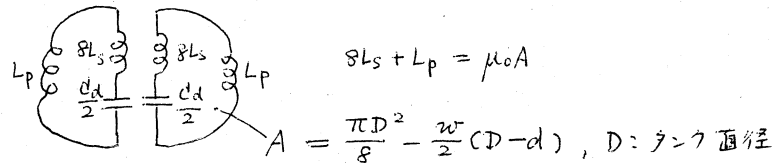 8Ls 8Ls
Lp Lp
Cd/2 Cd/2
8Ls + Lp = μ₀A
A = πD²/8 − w/2 (D−d) , D: タンク直径